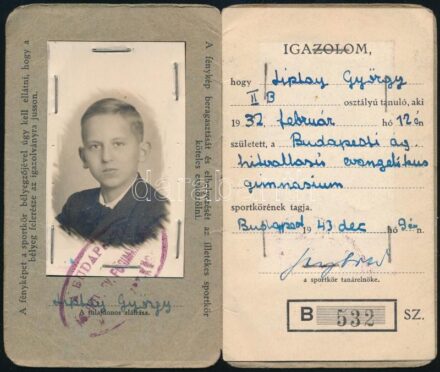 A fényképet a sportkör bélyegzőjével úgy kell ellátni, hogy a
bélyeg felerésze az igazolványra jusson.
A fénykép beragasztását és elhelyezését az illetékes sportkör
köteles eszközölni.
BUDAPEST
Liptay György
A tulajdonos aláírása.
IGAZOLOM,
hogy Liptay György
II B osztályú tanuló, aki
1932 február hó 12 én
született, a Budapesti ág.
hitvallású evangélikus
gimnásium
sportkörének tagja.
Budapest 1943 dec hó 9 én
a sportkör tanárelnöke.
B 532 SZ.
darabanth